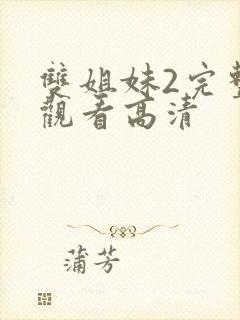 雙姐妹2完整
觀看高清
蒲芳